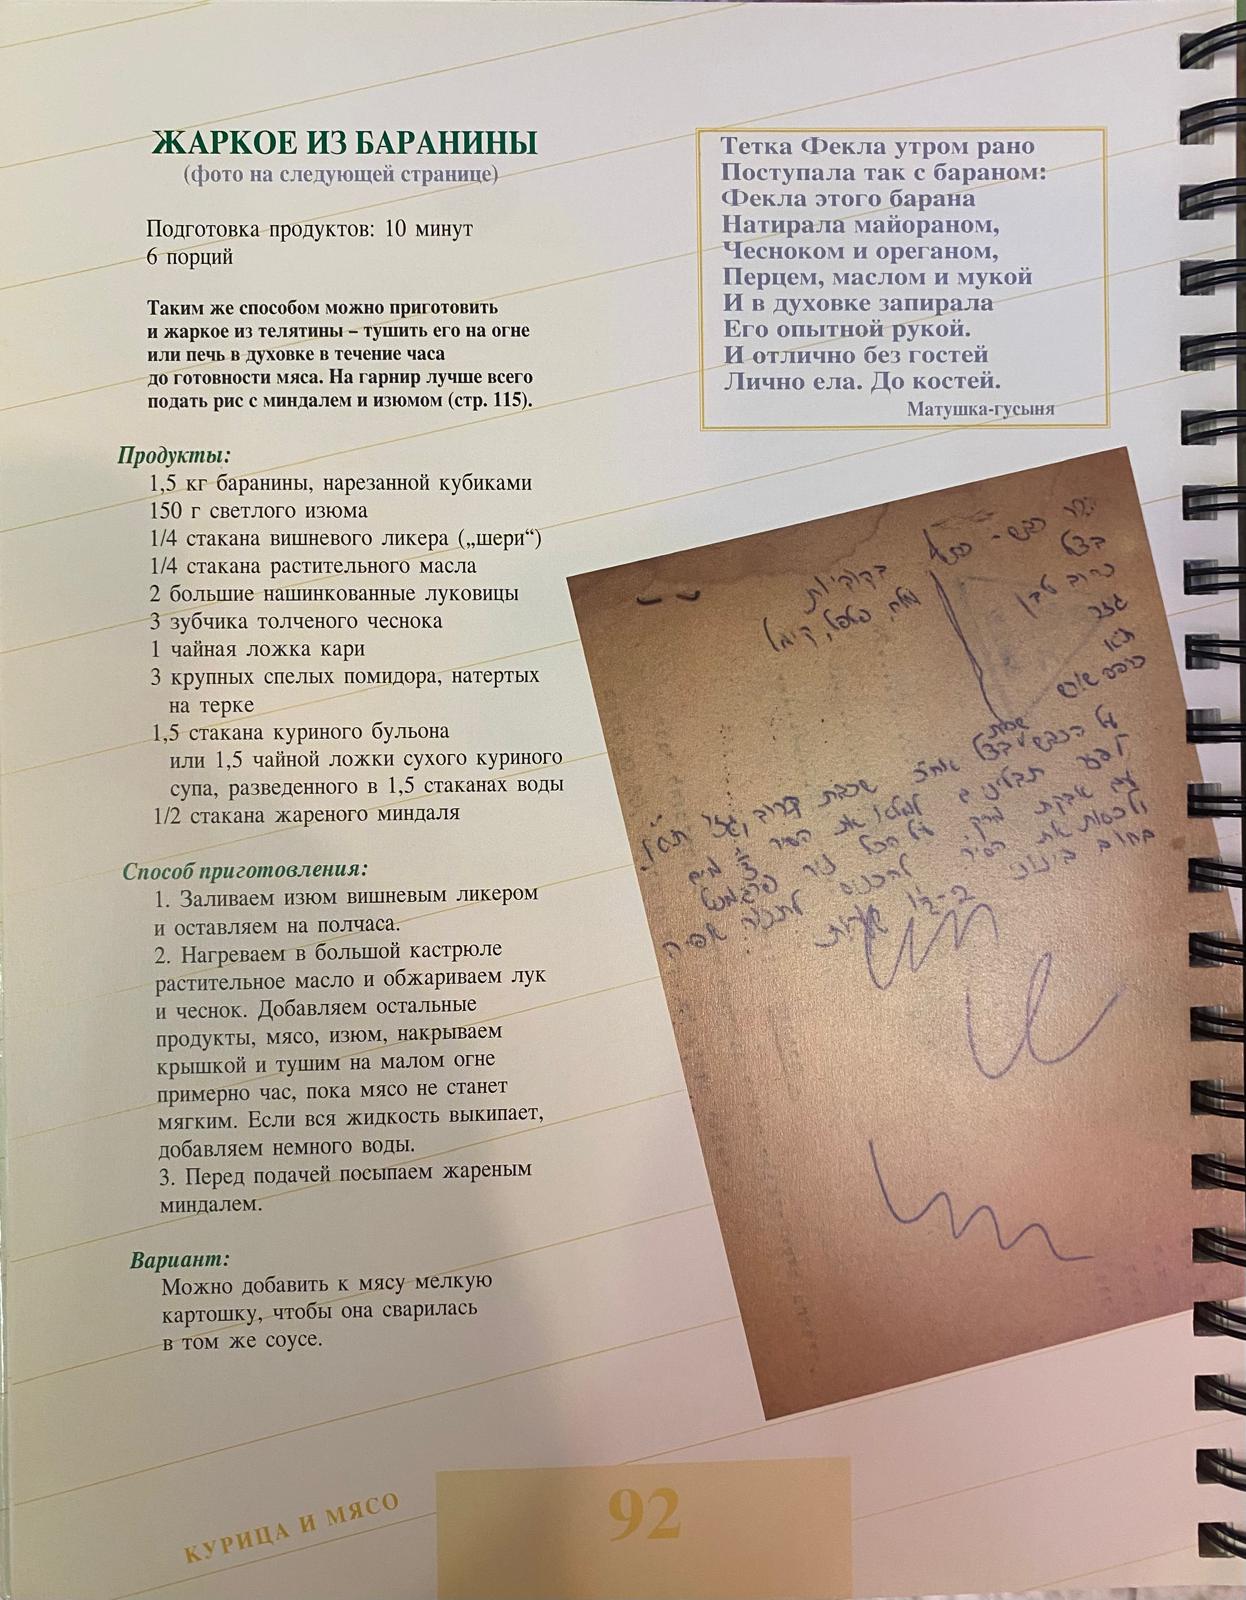 ЖАРКОЕ ИЗ БАРАНИНЫ
(фото на следующей странице)
Подготовка продуктов: 10 минут
6 порций
Таким же способом можно приготовить
и жаркое из телятины – тушить его на огне
или печь в духовке в течение часа
до готовности мяса. На гарнир лучше всего
подать рис с миндалем и изюмом (стр. 115).
Продукты:
1,5 кг баранины, нарезанной кубиками
150 г светлого изюма
1/4 стакана вишневого ликера („шери“)
1/4 стакана растительного масла
2 большие нашинкованные луковицы
3 зубчика толченого чеснока
1 чайная ложка кари
3 крупных спелых помидора, натертых
на терке
1,5 стакана куриного бульона
или 1,5 чайной ложки сухого куриного
супа, разведенного в 1,5 стаканах воды
1/2 стакана жареного миндаля
Способ приготовления:
1. Заливаем изюм вишневым ликером
и оставляем на полчаса.
2. Нагреваем в большой кастрюле
растительное масло и обжариваем лук
и чеснок. Добавляем остальные
продукты, мясо, изюм, накрываем
крышкой и тушим на малом огне
примерно час, пока мясо не станет
мягким. Если вся жидкость выкипает,
добавляем немного воды.
3. Перед подачей посыпаем жареным
миндалем.
Вариант:
Можно добавить к мясу мелкую
картошку, чтобы она сварилась
в том же соусе.
Тетка Фекла утром рано
Поступала так с бараном:
Фекла этого барана
Натирала майораном,
Чесноком и ореганом,
Перцем, маслом и мукой
И в духовке запирала
Его опытной рукой.
И отлично без гостей
Лично ела. До костей.
Матушка-гусыня
בצל
כרוב לבן
גזר
בקוביות
מלח, פלפל,
על הכבש בצל
שכבת כרוב
למלא את הסיר
עם אבקת מרק
ולכסות את הסיר
בחום בינוני
שעות
КУРИЦА И МЯСО
92